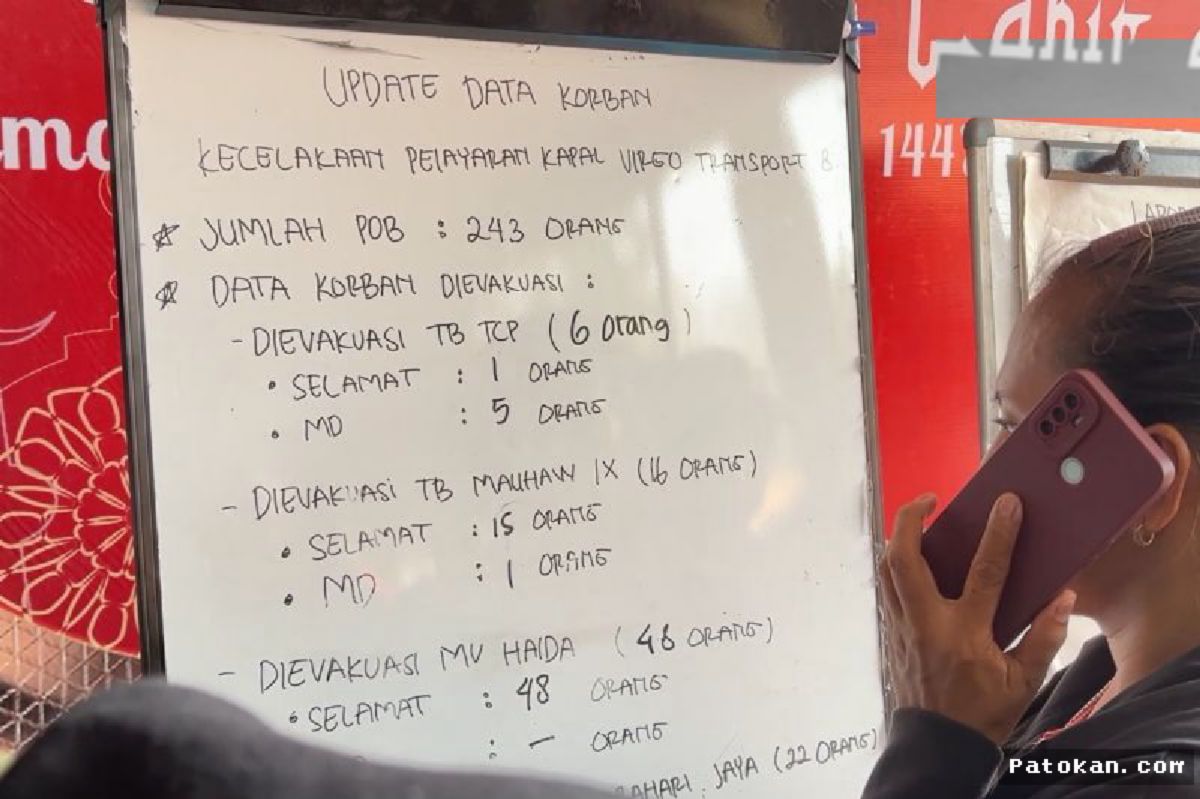 UPDATE DATA KORBAN
KECELAKAAN PELAYARAN KAPAL VIRGO TRANSPORT 8
☆ JUMLAH POB : 243 ORANG
☆ DATA KORBAN DIEVAKUASI :
- DIEVAKUASI TB TCP (6 Orang)
• SELAMAT : 1 ORANG
• MD : 5 ORANG
- DIEVAKUASI TB MAUHAW IX (16 ORANG)
• SELAMAT : 15 ORANG
• MD : 1 ORANG
- DIEVAKUASI MV HAIDA (48 ORANG)
• SELAMAT : 48 ORANG
: - ORANG
AHARI JAYA (22 ORANG)
Lahir
144
ma
LAPOR
Patokan.com